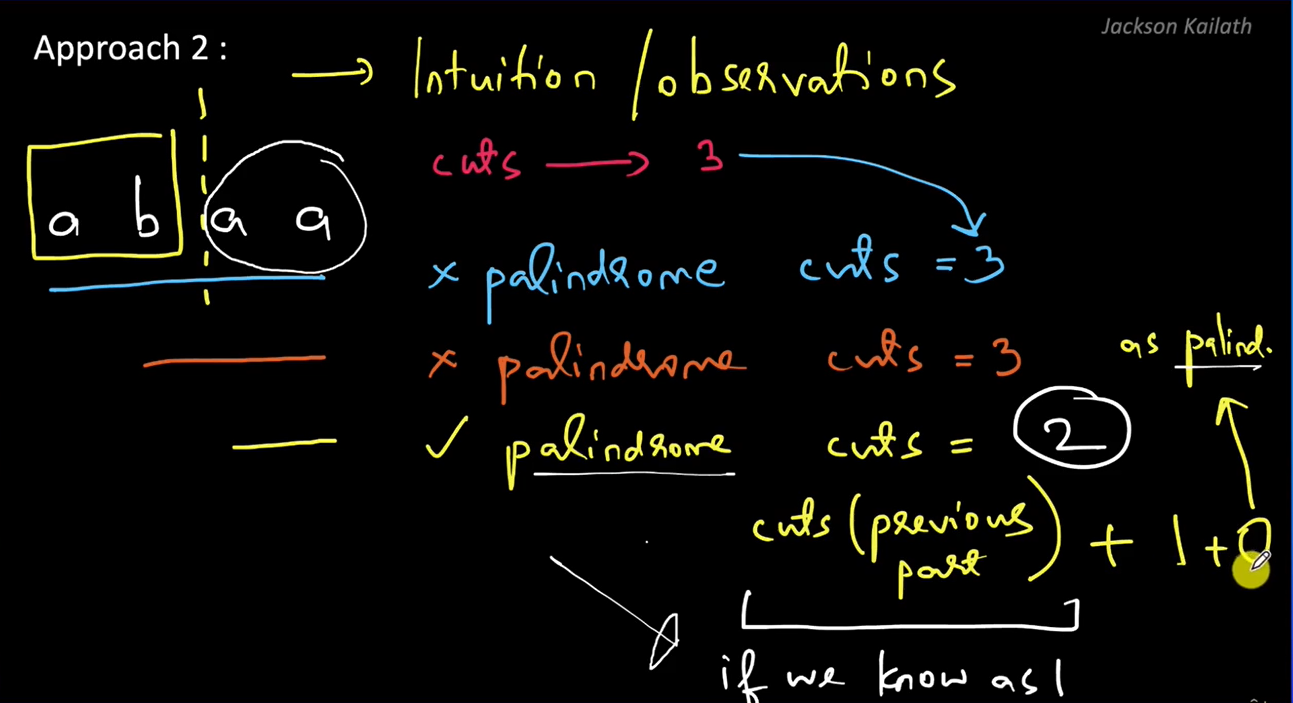 Jackson Kailath
Approach 2 :
→ Intuition / observations
cuts → 3
a b a a
x palindrome cuts = 3
x palindrome cuts = 3
as palind.
✓ palindrome cuts = 2
cuts (previous part) + 1 + 0
if we know as 1